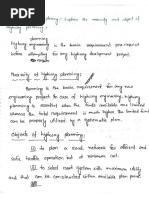 planning :- Explain the necessity and object of
highway planning :-
planning
highway engineering is the basic requirement pre-required
before attempting for any highway development project.
Necessity of highway planning:-
planning is the basic requirement for any new
engineering project & improvement of existing
highway, essential when the funds available are limited
whereas the total requirement is much higher, limited fund can
be properly utilized by a systematic plan.
Objects of highway planning:-
To plan a road network for efficient and
safe traffic operation but at minimum cost.
To select road system with maximum utility
and that can be constructed within available plan period